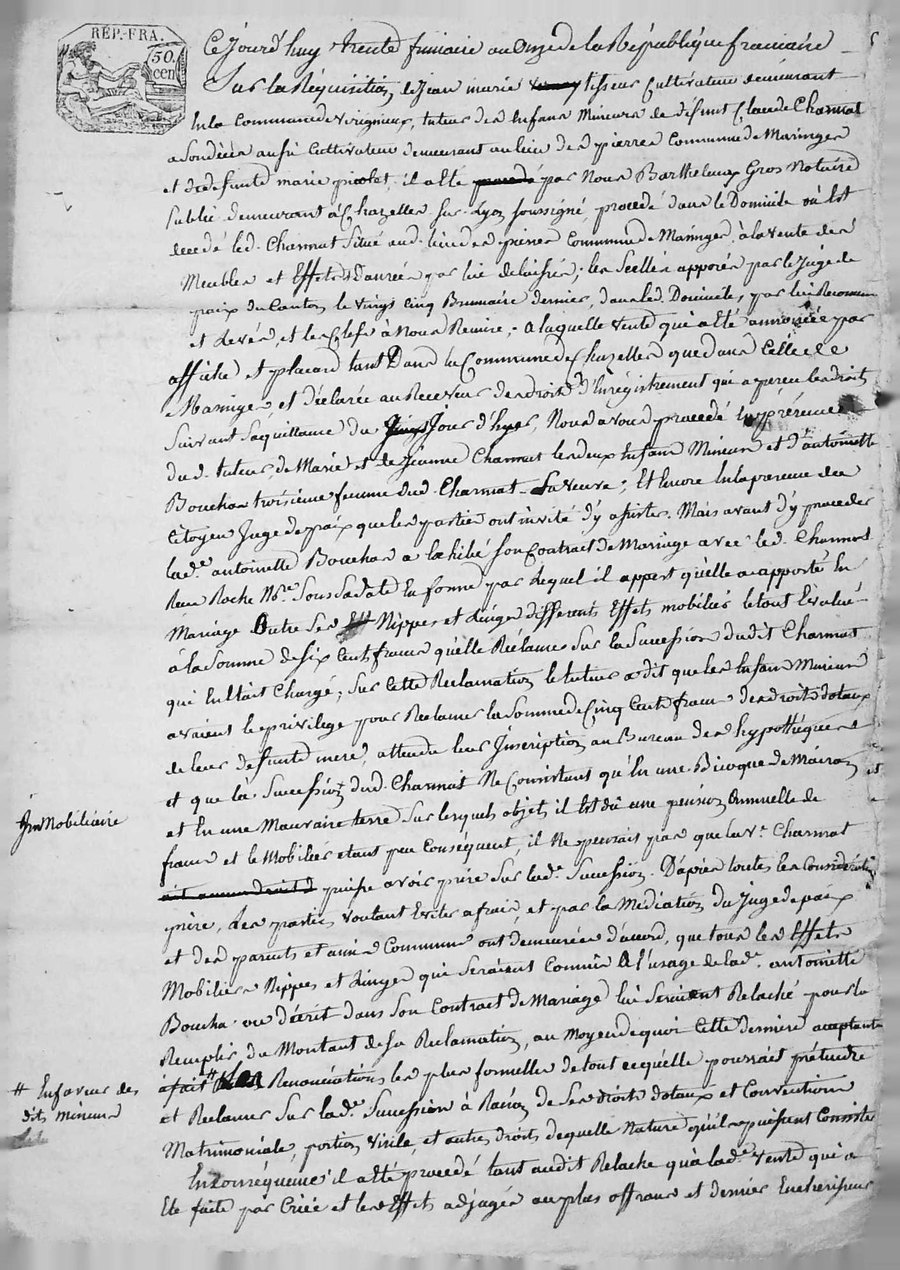 RÉP. FRA.
50.
cen
Ce Jourd'huy trente frimaire an Onze de la République francaise
Sur la Réquisition de Jean marie tisseur Cultivateur demeurant
En la Commune de Virigneux, tuteur des Enfans Mineurs de défunt Claude Charmat
a son décès aussi Cultivateur demeurant au lieu des pierres Commune de Maringes
et de defunte marie picolet, il a été par Nous Barthelemy Gros Notaire
public demeurant à Chazelles sur Lyon soussigné, procédé dans le Domicile où Est
decedé led. Charmat Situé aud. lieu des pierres Commune de Maringes, à la vente des
Meubles et Effets Danrées par lui delaissés; les Scellés apposés par le Juge de
paix du Canton le vingt Cinq Brumaire dernier, dans led. Domicile, par lui Reconnus
et Levés, et les Clefs à Nous Remise; a laquelle vente qui a été annoncée par
affiche et placard tant Dans la Commune de Chazelles que dans Celle de
Maringe, et déclarée au Receveur des droits d'Enregistrement qui a perçu les droits
Suivant Sa quittance du Jour d'hyer, Nous avons procédé En présence
dud. tuteur, de Marie et de Jeanne Charmat les deux Enfans Mineurs et d'antoinette
Bouchas troisième femme dud. Charmat Sa veuve; Et Encore En la présence du
Citoyen Juge de paix que les parties ont invité d'y assister. Mais avant d'y proceder
lad.e antoinette Bouchas a Exhibé son Contract de Mariage avec led. Charmat
Reçu Roche No.re Sous Sa date En forme par Lequel il appert qu'elle a apporté En
Mariage Outre Ses Nippes et Linge différents Effets mobiliés le tout Evalué
à la Somme de Six Cent francs qu'elle Réclame Sur la Succession dudit Charmat
qui En Etait Chargé; Sur Cette Reclamation le tuteur a dit que les Enfans Mineurs
avaient le privilege pour Réclamer la Somme de Cinq Cent francs des droits dotaux
de leur defunte mere, attendu leur Inscription au Bureau des hypothéques
et que la Succession dud. Charmat Ne Consistant qu'En une Bicoque de Maison
et En une Mauvaise terre Sur lesquels objets il Est dû une pension Annuelle de
francs et le Mobiliés étant peu Conséquent, il Ne pensait pas que la v.e Charmat
puisse avoir prise Sur lad.e Succession. D'après toutes les Considérations
prise, Les parties voulant Eviter a frais et par la Médiation du Juge de paix
et des parents et amis Communs ont demeurées d'accord, que tous les Effets
Mobiliers Nippes et Linge qui Seraient Connus A l'usage de lad.e antoinette
Boucha ou décrit dans Son Contract de Mariage lui Seraient Relaché pour la
Remplir du Montant de Sa Reclamation, au Moyen de quoi Cette dernière acceptante
a fait # Renonciations les plus formelles de tout ce qu'elle pourrait prétendre
et Reclamer Sur lad.e Succession à Raison de Ses droits dotaux et Conventions
Matrimoniale, portion virile, et autres droits de quelle Nature qu'ils puissent Consister
En Conséquence il a été procédé tant audit Relache qu'à lad.e vente qui a
Eté faite par Criée et les Effets adjugés au plus offrans et dernier Encherisseur
Immobiliaire
# En faveur des
dits mineurs